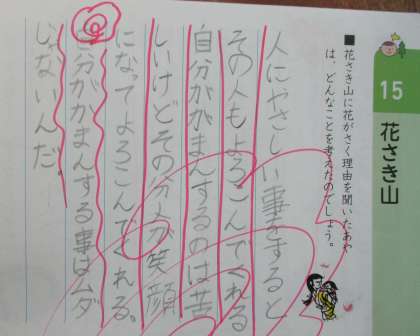 15
花さき山
■花さき山に花がさく理由を聞いたあや
は、どんなことを考えたのでしょう。
人にやさしい事をすると
その人もよろこんでくれる
自分ががまんするのは苦
しいけどその分人が笑顔
になってよろこんでくれる。
自分がかまんする事はムダ
じゃないんだ。